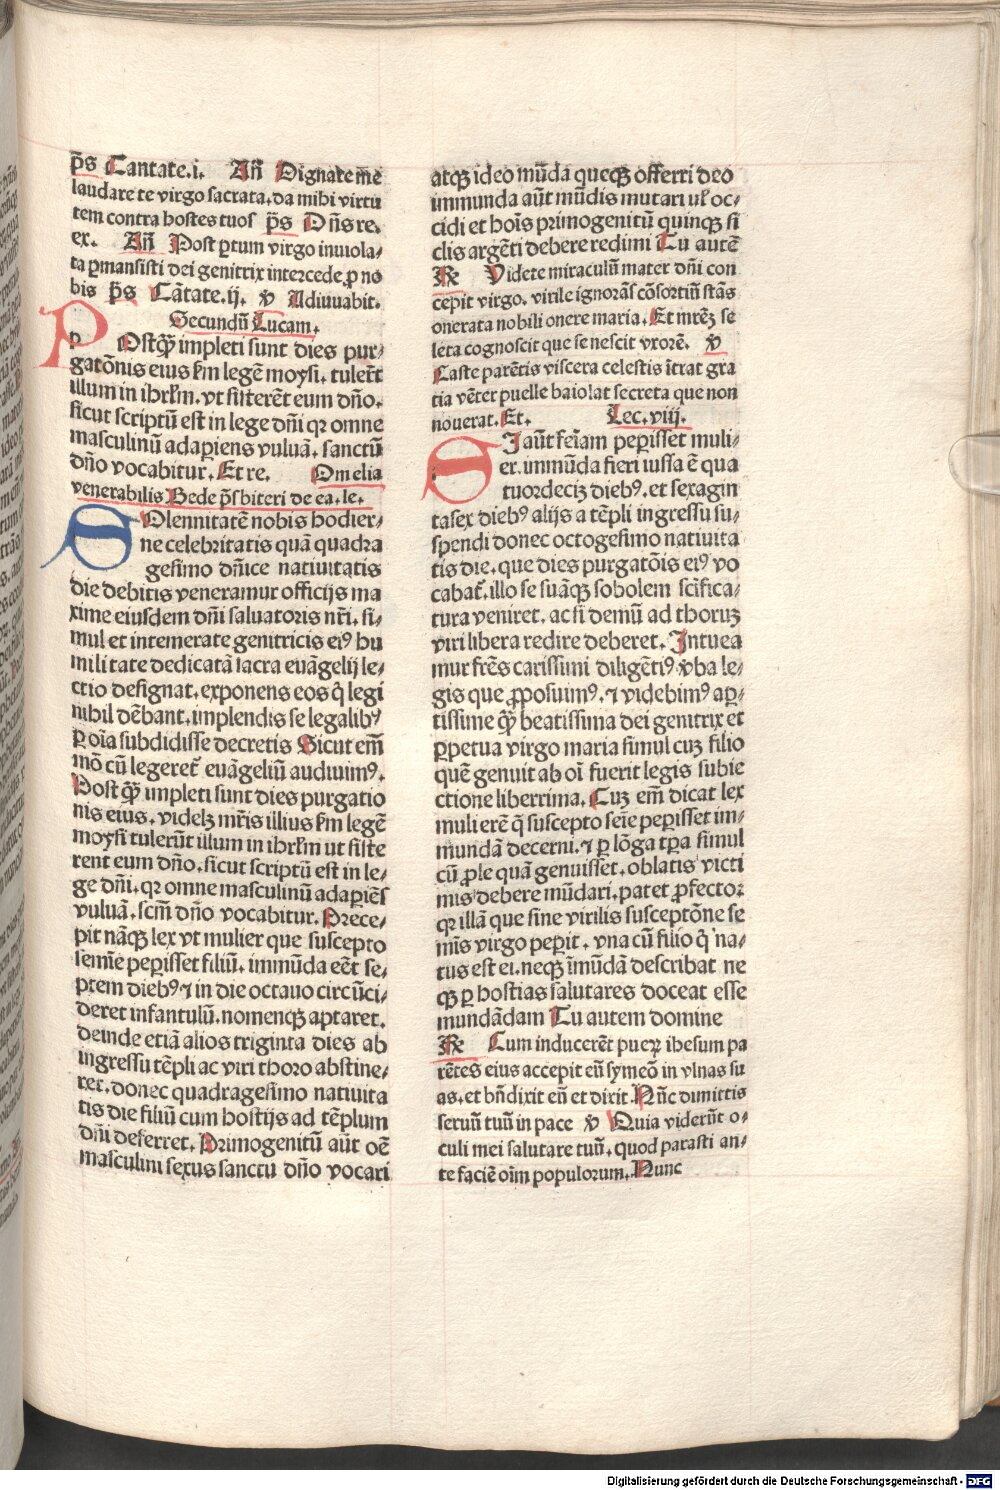 p̄s Cantate.i. Añ Dignare me
laudare te virgo sacrata.da mihi virtu
tem contra hostes tuos p̄s Dñs re⸗
ex. Añ Post ꝑtum virgo inuiola⸗
ta ꝑmansisti dei genitrix intercede ꝓ no
bis p̄s Cãtate.ij. ꝟ Adiuuabit.
Secundũ Lucam.
p Ostqꝫ̃ impleti sunt dies pur⸗
gatõnis eius ẜm legẽ moysi. tulerũt
illum in ihrlm̃. vt sisterẽt eum dño.
sicut scriptũ est in lege dñi qꝛ omne
masculinũ adaꝑiens vuluã. sanctũ
dño vocabitur. Et re. Omelia
venerabilis Bede p̃sbiteri de ea.le.
SOlennitatẽ nobis hodier⸗
ne celebritatis quã quadra
gesimo dñice natiuitatis
die debitis veneramur officijs ma
xime eiusdem dñi saluatoris nr̃i. si⸗
mul et intemerate genitricis eiꝰ hu
militate dedicatã sacra euãgelij le⸗
ctio designat.exponens eos q̃ legi
nihil dẽbant.implendis se legalibꝰ
ꝑ oĩa subdidisse decretis Sicut em̃
mõ cũ legeret᷑ euãgeliũ audiuimꝰ.
Post qꝫ̃ impleti sunt dies purgatio
nis eius. videlꝫ mr̃is illius ẜm legẽ
moysi tulerũt illum in ihrlm̃ ut siste
rent eum dño.sicut scriptũ est in le⸗
ge dñi. qꝛ omne masculinũ adaꝑiẽs
vuluã.scm̃ dño vocabitur. Prece⸗
pit nãqꝫ lex vt mulier que suscepto
semĩe peꝑisset filiũ. immũda eẽt se⸗
ptem diebꝰ ⁊ in die octauo circũci⸗
deret infantulũ.nomenqꝫ aptaret.
deinde etiã alios triginta dies ab
ingressu tẽpli ac viri thoro abstine⸗
ret.donec quadragesimo natiuita
tis die filiũ cum hostijs ad tẽplum
dñi deferret. Primogenitũ aũt oẽ
masculini sexus sanctũ dño vocari
atqꝫ ideo mũda queqꝫ offerri deo
immunda aũt mũdis mutari ul̃ oc⸗
cidi et hoĩs primogenitũ quinqꝫ si
clis argẽti debere redimi Tu autẽ
℟ Videte miraculũ mater dñi con
cepit virgo. virile ignorãs cõsortiũ stãs
onerata nobili onere maria. Et mr̃eꝫ se
leta cognoscit que se nescit vxorẽ. ꝟ
Caste parẽtis viscera celestis ĩtrat gra
tia vẽter puelle baiolat secreta que non
nouerat. Et. Lec.viij.
SI aũt feĩam peꝑisset muli⸗
er.immũda fieri iussa ẽ qua
tuordeciꝫ diebꝰ.et sexagin
tasex diebꝰ alijs a tẽpli ingressu su⸗
spendi donec octogesimo natiuita
tis die. que dies purgatõis eiꝰ vo
cabat᷑.illo se suãqꝫ sobolem scĩfica⸗
tura veniret. ac si demũ ad thoruꝫ
viri libera redire deberet. Intuea
mur fr̃es carissimi diligẽtiꝰ ꝟba le⸗
gis que ꝓposuimꝰ.⁊ videbimꝰ aꝑ⸗
tissime qꝫ̃ beatissima dei genitrix et
ꝑpetua virgo maria simul cuꝫ filio
quẽ genuit ab oĩ fuerit legis subie
ctione liberrima. Cuꝫ em̃ dicat lex
mulierẽ q̃ suscepto seĩe peꝑisset im⸗
mundã decerni.⁊ ꝑ lõga tꝑa simul
cũ ꝓle quã genuisset.oblatis victi
mis debere mũdari.patet ꝓfector
qꝛ illã que sine virilis susceptõne se
mĩs virgo peꝑit . vna cũ filio q̃ na⸗
tus est ei.neqꝫ ĩmũdã describat ne
qꝫ ꝑ hostias salutares doceat esse
mundãdam Tu autem domine
℟ Cum inducerẽt pueꝝ ihesum pa
rẽtes eius accepit eũ symeõ in vlnas su
as.et bñdixit eũ et dixit. Nũc dimittis
seruũ tuũ in pace ꝟ Quia viderũt o⸗
culi mei salutare tuũ. quod parasti an⸗
te faciẽ oĩm populorum. Nunc
Digitalisierung gefördert durch die Deutsche Forschungsgemeinschaft - DFG